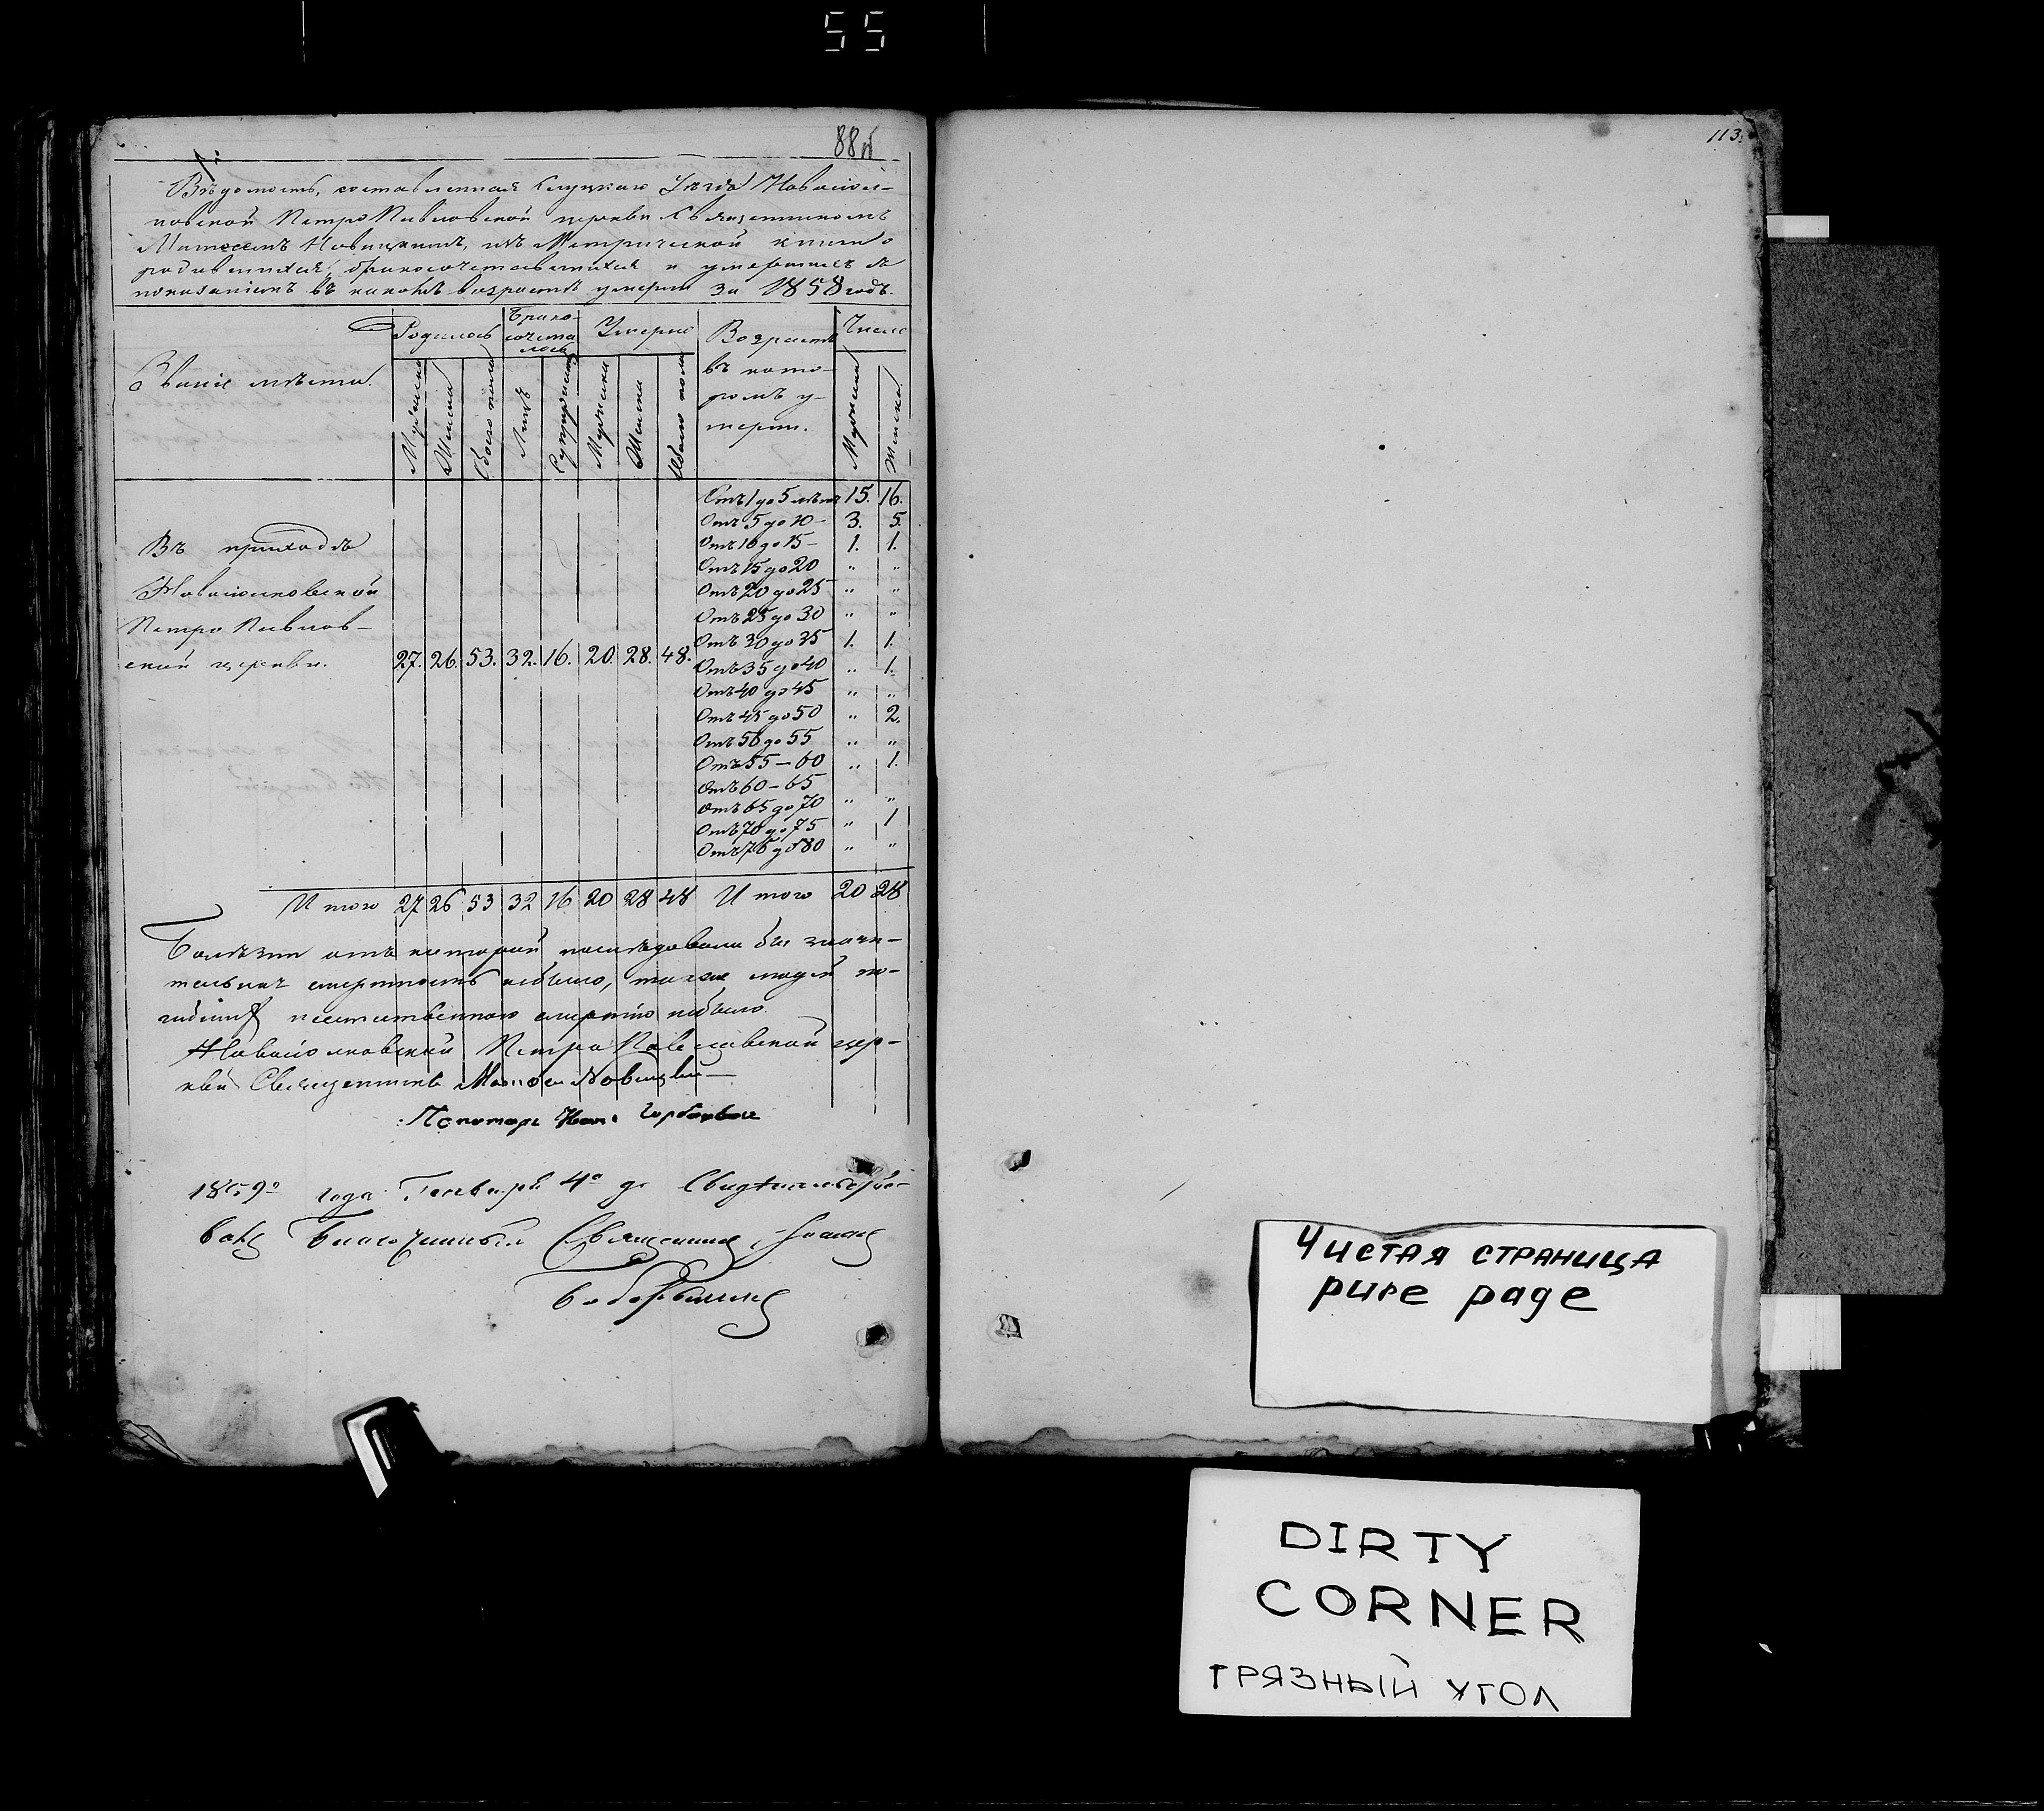 55
88
113.
Вѣдомость, составленная Слуцкаго Уѣзда Новосіол-
ковской Петро Павловской церкви Священникомъ
Матѳеемъ Новицкимъ, изъ Метрической книги о
родившихся, бракосочетавшихся и умершихъ съ
показаніемъ въ какомъ возрастѣ умерли за 1858 годъ.
Званіе мѣста.
Родилось
Брако-
сочета
лось
Умерло
Возрастъ
въ кото-
ромъ у-
мерли.
Число
Мужеска
Женска
Обоего пола
Лицъ
Супружествъ
Мужеска
Женска
Обоего пола
Мужеска
Женска
Въ приходѣ
Новосіолковской
Петро Павлов-
ской церкви. 27. 26. 53. 32. 16. 20. 28. 48.
Отъ 1 до 5 лѣтъ 15. 16.
Отъ 5 до 10 – 3. 5.
Отъ 10 до 15 – 1. 1.
Отъ 15 до 20 " "
Отъ 20 до 25 " "
Отъ 25 до 30 " "
Отъ 30 до 35 1. 1.
Отъ 35 до 40 " 1.
Отъ 40 до 45 " "
Отъ 45 до 50 " 2.
Отъ 50 до 55 " "
Отъ 55 – 60 " 1.
Отъ 60 – 65
Отъ 65 до 70 " "
Отъ 70 до 75 " 1
Отъ 75 до 80 " "
И того 27 26 53 32 16 20 28 48 И того 20 28
Болѣзни отъ которой послѣдовала бы значи-
тельная смертность небыло, также людей по-
гибшихъ неестественною смертію небыло.
Новосіолковской Петро Павловской цер-
кви Священникъ Матѳей Новицкій
Пономарь Иванъ Горбацевич
1859го года Генваря 4го д. Свидѣтельство-
валъ Благочинный Священникъ Іоаннъ
Чистая страница
pure page
DIRTY
CORNER
грязный угол